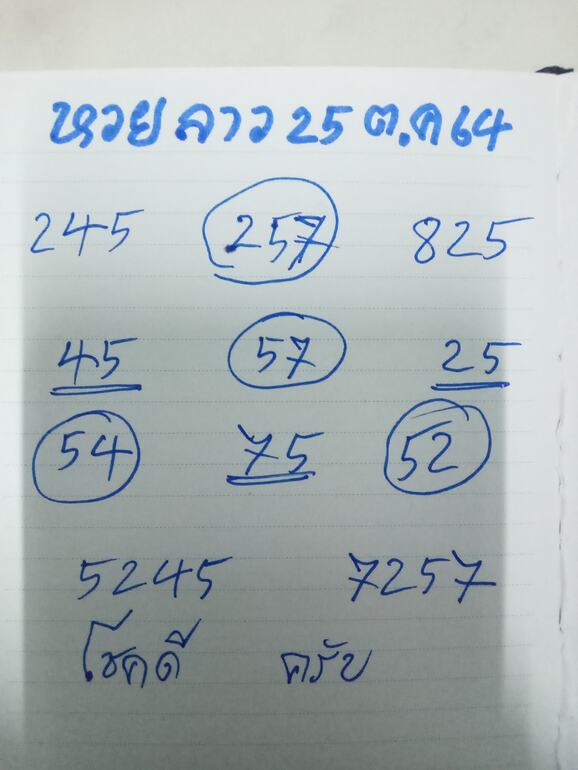 หวยลาว 25 ต.ค 64
245 257 825
45 57 25
54 75 52
5245 7257
โชคดี ครับ